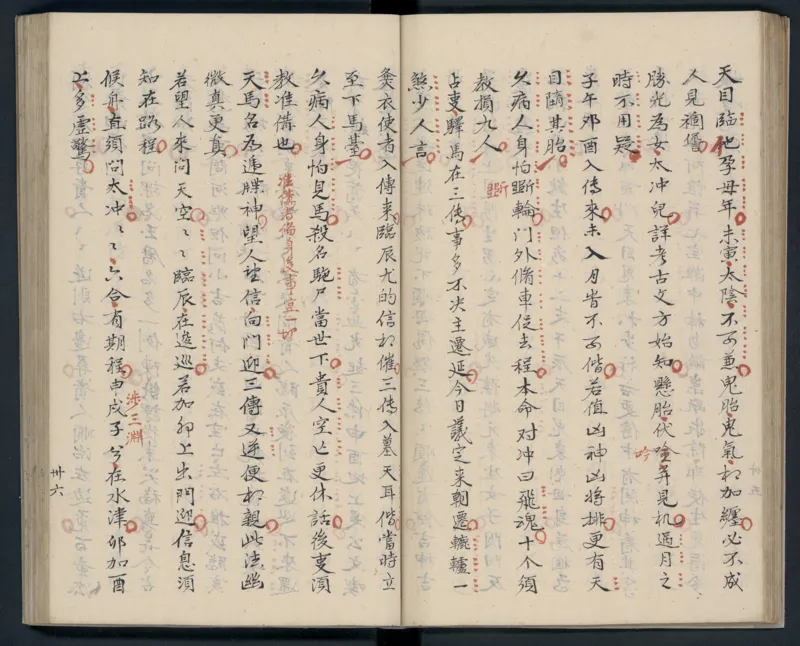 天目臨他孕母年未寅太陰不可兼鬼胎鬼氣相加纏必不成
人見禍僭
勝光為女太冲兒詳考古文方始知懸胎伏弃見机過月之
吟
時不用疑
子午夘酉入傳來未入月皆不可偕若值凶神凶將排更有天
目隨其胎
久病人身怕斷輪門外脩車促去程本命对冲曰飛魂十个須
教損九人
斷
占吏驛馬在三傳事多不决主遷延今日議定来朝遷轆轤一
煞少人言
喪衣使者入傳来臨辰尤的信相催三傳入墓天耳偕當時立
至下馬墓
久病人身怕見馬殺名駞尸當世下貴人空亡更休話後吏須
教准備也
准俻者俻身後事宜一切
天馬名為遞牒神望人望信向門迎三傳又逆便相親此法幽
微真更真
若望人来問天空〻〻臨辰在逡巡若加夘上出門迎信息須
知在路程
候舟直須問太冲〻〻六合有期程申戌子兮在水津夘加酉
涉三淵
上多虛驚
卅五
卅六